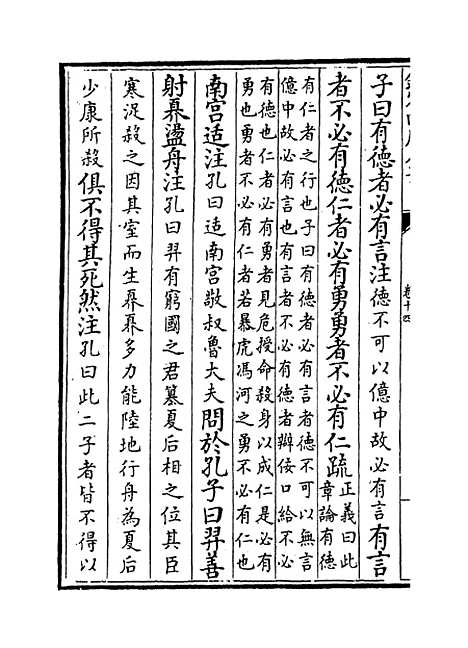 子曰有德者必有言注德不可以億中故必有言有言
者不必有德仁者必有勇勇者不必有仁疏正義曰此
章論有德
有仁者之行也子曰有德者必有言者德不可以無言
億中故必有言也有言者不必有德者辯佞口給不必
有德也仁者必有勇者見危授命殺身以成仁是必有
勇也勇者不必有仁者若暴虎馮河之勇不必有仁也
南宫适注孔曰适南宫敬叔魯大夫問於孔子曰羿善
射奡盪舟注孔曰羿有窮國之君簒夏后相之位其臣
寒浞殺之因其室而生奡奡多力能陸地行舟為夏后
少康所殺俱不得其死然注孔曰此二子者皆不得以